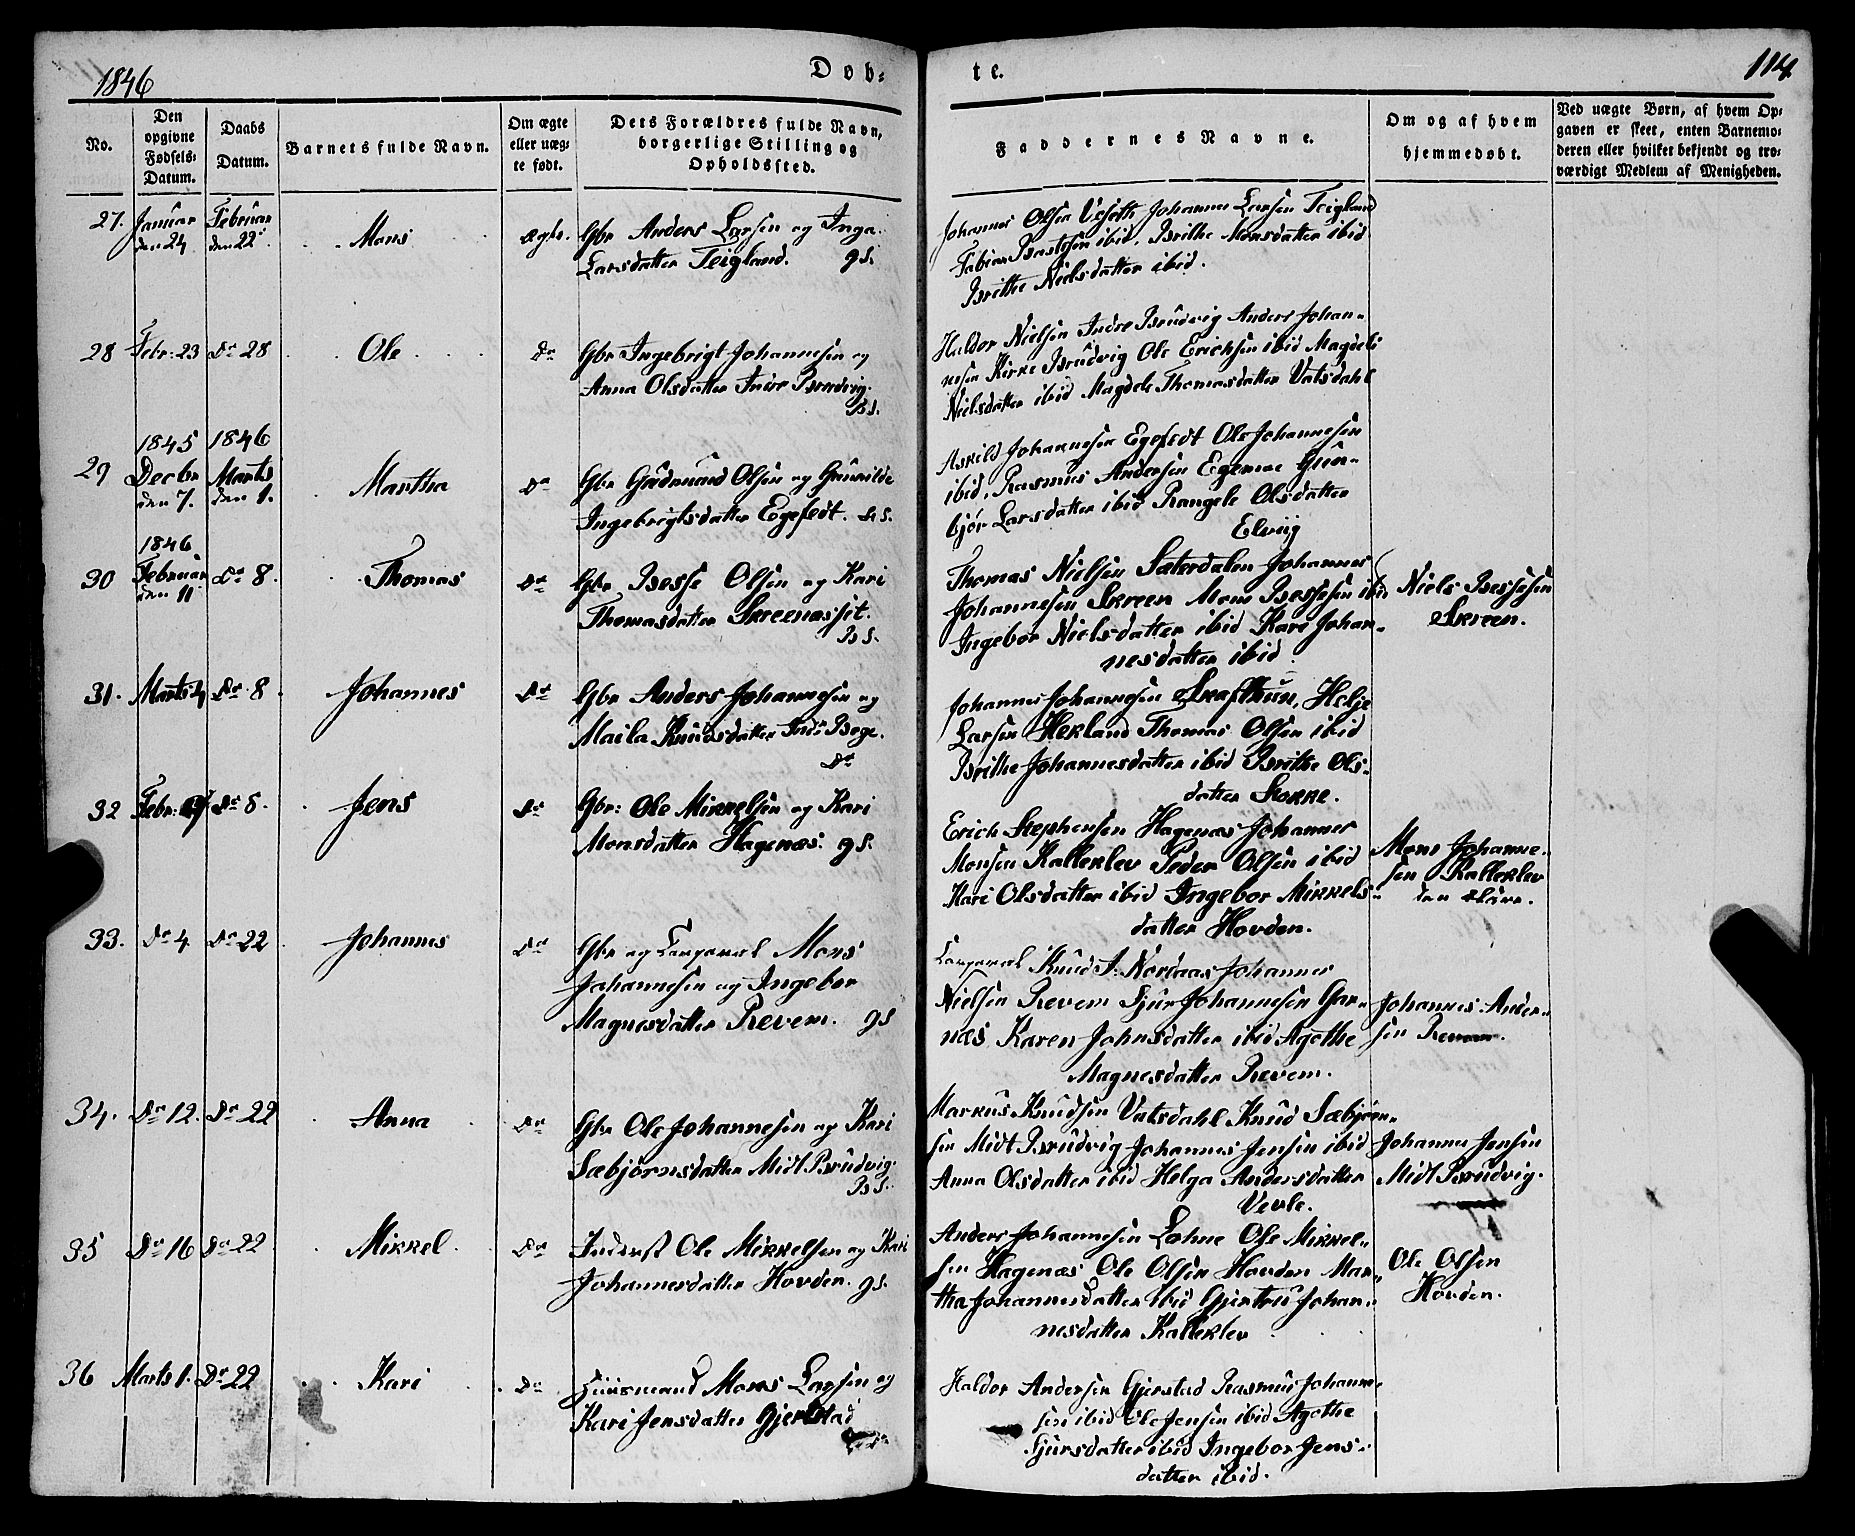 1846
Døb-
te.
114
No.
Den
opgivne
Fødsels-
Datum.
Daabs
Datum.
Barnets fulde Navn.
Om ægte
eller uæg-
te født.
Dets Forældres fulde Navn,
borgerlige Stilling og
Opholdssted.
Faddernes Navne.
Om og af hvem
hjemmedøbt.
Ved uægte Børn, af hvem Op-
gaven er skeet, enten Barnemo-
deren eller hvilket bekjendt og tro-
værdigt Medlem af Menigheden.
27.
Januar
den 24
Februar
den 22
Mons
ægte.
Gbr Anders Larsen og Inga
Larsdatter Teigland. gs.
Johannes Olsen Veseth Johannes Larsen Teigland
Fabian ibid. Brithe Monsdatter ibid
Brithe Nielsdatter ibid.
28
Febr: 23
Do 28
Ole
Do
Gbr Ingebrigt Johannesen og
Anna Olsdatter Indre Brudvig.
Bs.
Haldor Nielsen Indre Brudvig Anders Johan-
nesen Kirke Brudvig Ole Erichsen ibid Magdeli
Nielsdatter ibid Magdele Thomasdatter Vatsdahl
29
1845
Decbr
den 7.
1846
Marts
den 1.
Martha
Do
Gbr Gudmund Olsen og Gunnilde
Ingebrigtsdatter Egefedt.
Askild Johannesen Egefedt Ole Johannesen
ibid, Rasmus Andersen Egemoe Gun-
bjør Larsdatter ibid Rangele Olsdatter
Elvig
30
1846
Februar
den 11
Do 8.
Thomas
Do
Gbr Besse Olsen og Kari
Thomasdatter Skreenæsset.
Bs.
Thomas Nielsen Saterdalen Johannes
Johannesen Skreen Mons Bessesen ibid
Ingebor Nielsdatter ibid Kari Johan-
nesdatter ibid
Niels Bessesen
Skreen.
31.
Marts 4
Do 8
Johannes
Do
Gbr Anders Johannesen og
Maila Knudsdatter Indr Boge.
Do
Johannes Johannesen Skafthun, Helje
Larsen Herland Thomas Olsen ibid
Brithe Johannesdatter ibid Brithe Ols-
datter Skokke.
32
Febr:
Do 8.
Jens
Do
Gbr: Ole Mikkelsen og Kari
Monsdatter Hagenæs. gs.
Erich Stephensen Hagenæs Johannes
Monsen Kalleklev Peder Olsen ibid
Kari Olsdatter ibid Ingebor Mikkels-
datter Hovden.
Mons Johanne-
sen Kalleklev
den
33.
Do 4
Do 22
Johannes
Do
Gbr og Corporal Mons
Johannesen og Ingebor
Magnesdatter Revem. gs
Corporal Knud J. Nordaas Johannes
Nielsen Revem Sjur Johannesen Gar-
næs Karen Johnsdatter ibid Agethe
Magnesdatter Revem.
Johannes Ander-
sen Revem.
34.
Do 12.
Do 22
Anna
Do
Gbr Ole Johannesen og Kari
Sæbjørnsdatter Midt Brudvig.
Bs.
Markus Knudsen Vatsdahl Knud Sæbjørn-
sen Midt Brudvig Johannes Jensen ibid
Anna Olsdatter ibid Helga Andersdatter
Vevle.
Johannes Jensen
Midt Brudvig.
35
Do 16
Do 22
Mikkel
Do
Inderst Ole Mikkelsen og Kari
Johannesdatter Hovden. gs.
Anders Johannesen Løhne Ole Mikkel-
sen Hagenæs Ole Olsen Hovden Mar-
tha Johannesdatter ibid Gjertru Johan-
nesdatter Kalleklev
Ole Olsen
Hovden.
36
Marts 1.
Do 22
Kari
Do
Huusmand Mons Larsen og
Kari Jensdatter Gjerstad
Haldor Andersen Gjerstad Rasmus Johanne-
sen ibid Ole Jensen ibid Agethe
Sjursdatter ibid Ingebor Jens-
datter ibid.